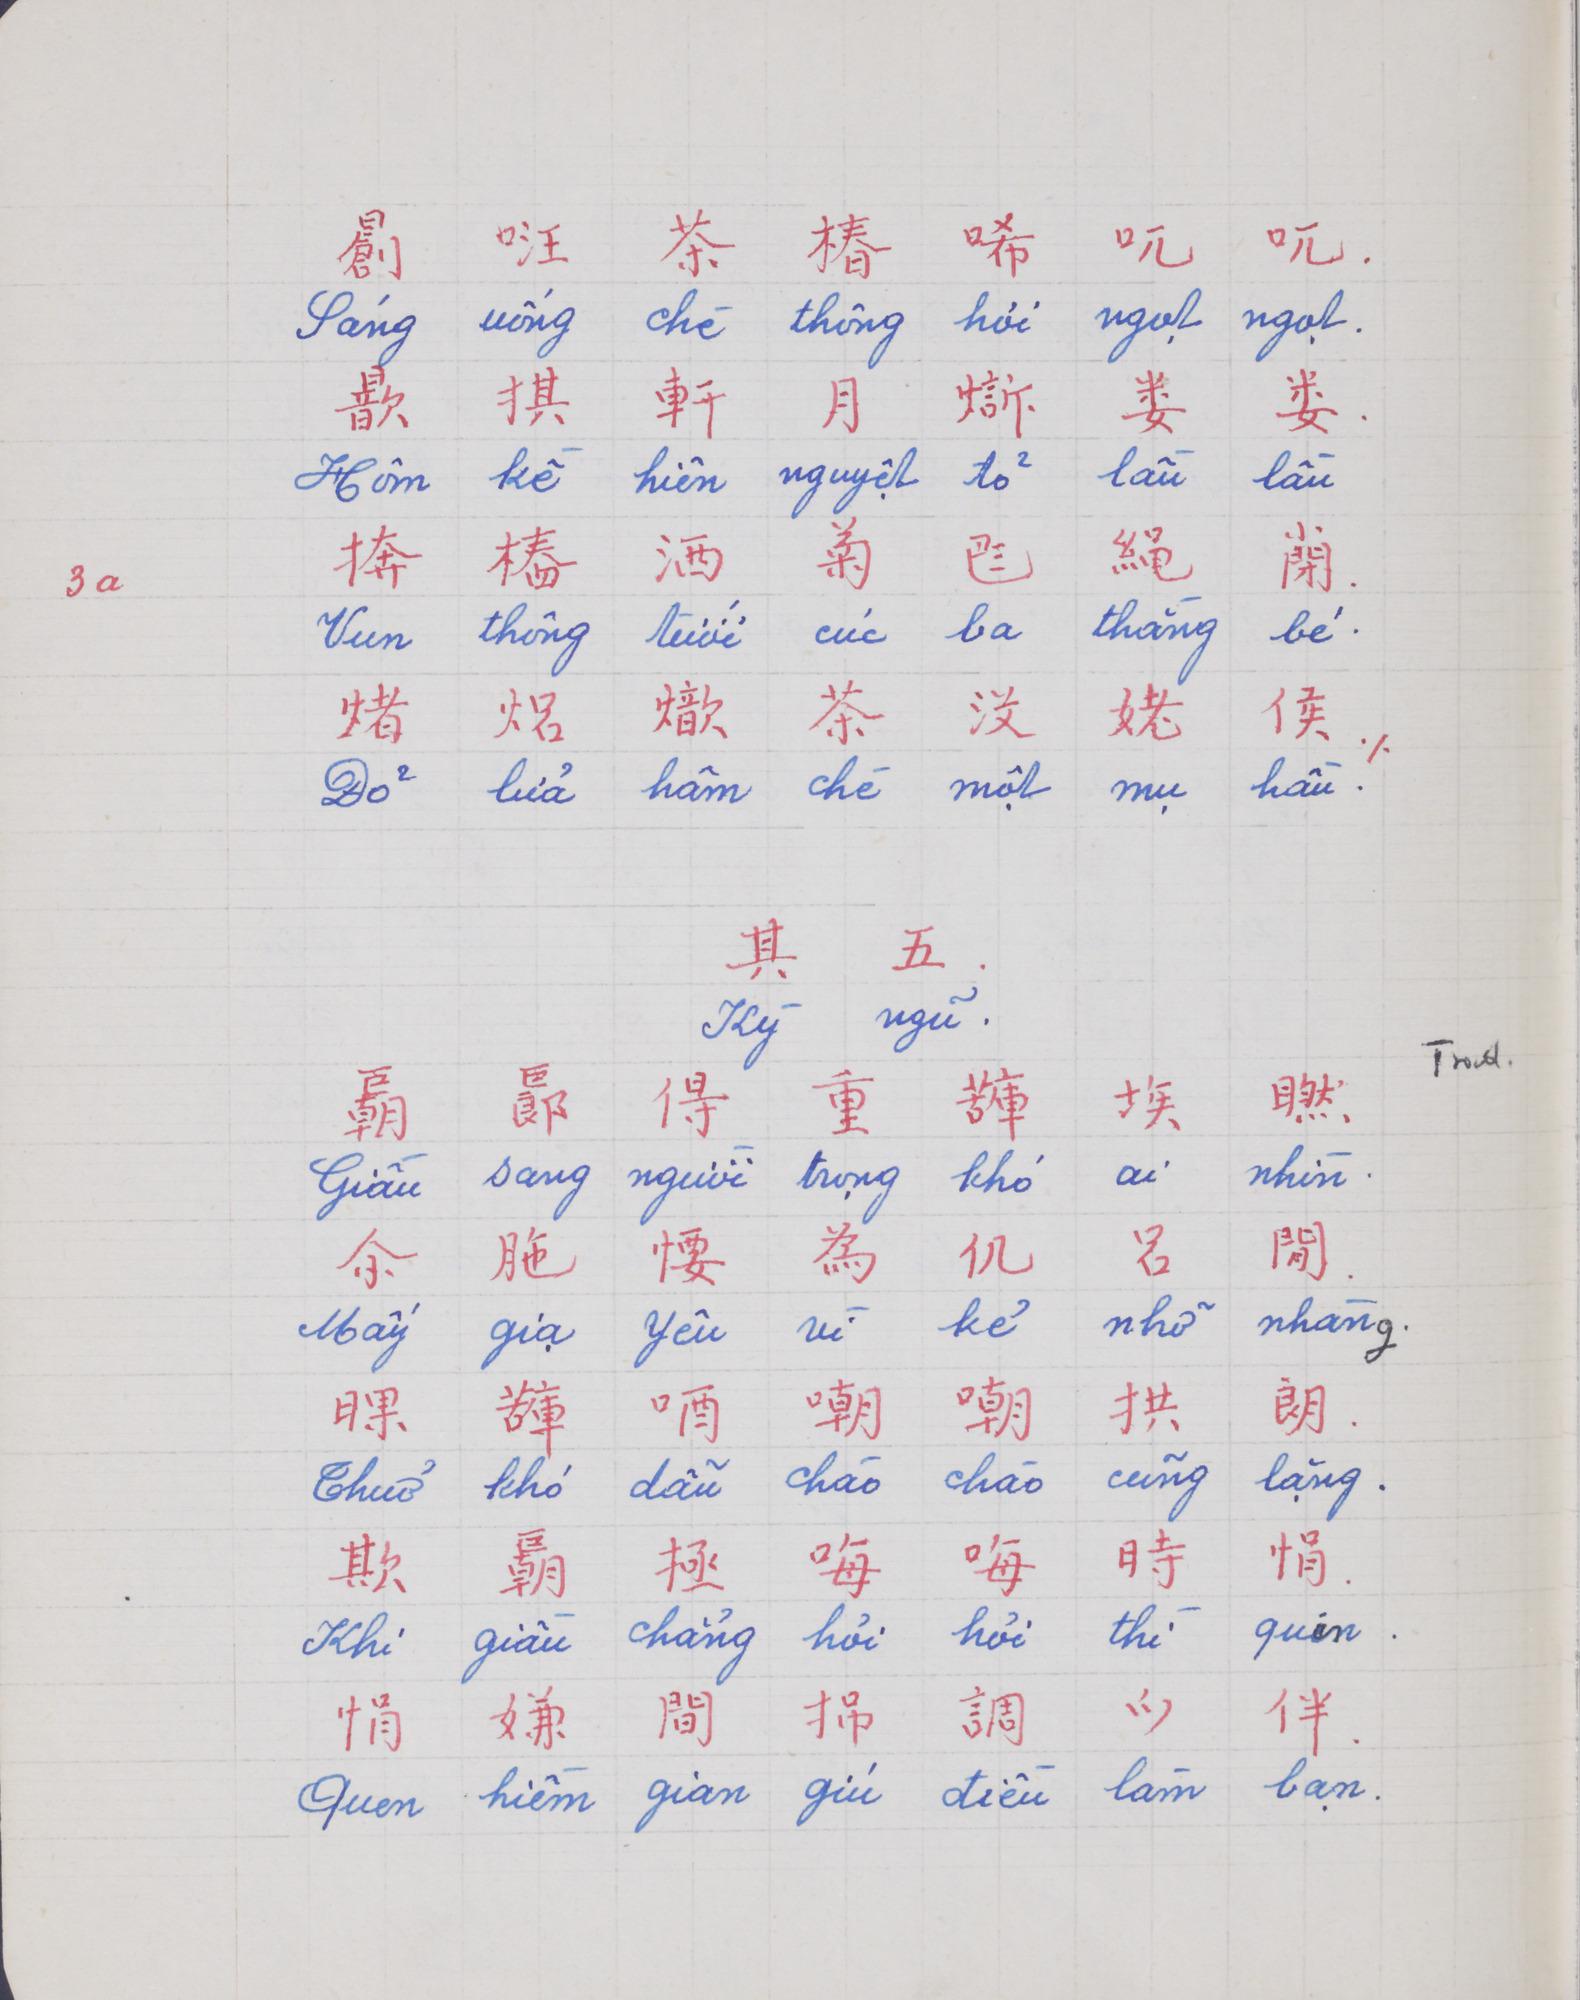 𠓇 㕵 茶 椿 唏 吭 吭.
Sáng uống chè thông hỏi ngọt ngọt.
歆 掑 軒 月 𤐝 娄 娄.
Hôm kề hiên nguyệt tỏ làu làu
捹 樁 洒 菊 𠀧 繩 閉.
3a
Vun thông tưới cúc ba thằng bé.
𤌣 焒 𤐛 茶 没 姥 侯 ٪
Đỏ lửa hâm chè một mụ hầu.
其 五.
Kỳ ngũ.
Trad.
𢀭 郎 得 重 𧁷 埃 𥆾
Giầu sang người trọng khó ai nhìn.
余 肔 㤇 為 仉 吕 閒.
Mấy giạ yêu vì kẻ nhỡ nhàng.
𣇞 𧁷 唒 嘲 嘲 拱 朗.
Thuở khó dẫu chào chào cũng lặng.
欺 𢀭 拯 㖼 㖼 時 悁.
Khi giầu chẳng hỏi hỏi thì quen.
悁 嫌 間 㧅 調 𫜵 伴.
Quen hiềm gian giú điều làm bạn.